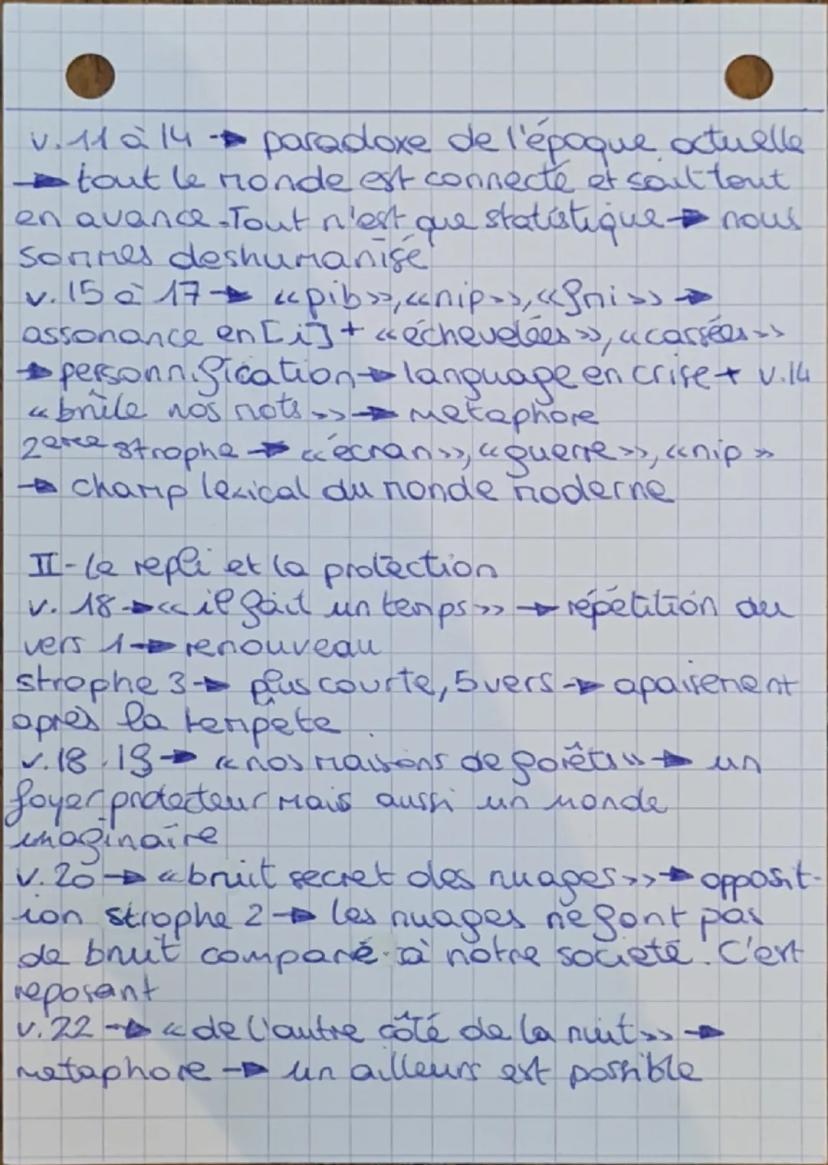 v.11 à 14 → paradoxe de l'époque actuelle
→ tout le monde est connecté et sait tout
en avance. Tout n'est que statistique → nous
sommes deshumanisé
v.15 à 17 → «pib», «nip», «fmi» →
assonance en [i] + «échevelées», «cassées»
→ personnification → language en crise + v.14
«brûle nos mots» → metaphore
2eme strophe → «écran», «guerre», «nip»
→ champ lexical du monde moderne
II - Le repli et la protection
v.18 → «il fait un temps» → répétition du
vers 1 → renouveau
strophe 3 → plus courte, 5 vers → apaisement
après la tempete.
v.18.19 → «nos maisons de forêts» → un
foyer protecteur mais aussi un monde
imaginaire
v.20 → «bruit secret des nuages» → opposit-
ion strophe 2 → les nuages ne font pas
de bruit comparé à notre societé. C'est
reposant
v.22 → «de l'autre côté de la nuit» →
metaphore → un ailleurs est possible